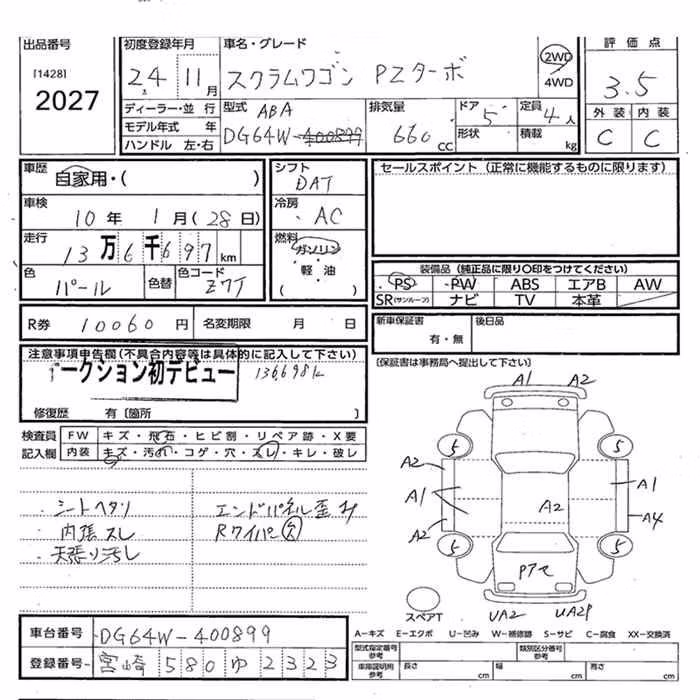 出品番号 初度登録年月 車名・グレード 評価点
[1428] 24年 11月 スクラムワゴン PZターボ 2WD 4WD 3.5
2027
ディーラー・並行 型式 ABA 排気量 ドア 5 定員 4人 外装 内装
モデル年式 年 DG64W-400899 660CC 形状 積載 kg C C
ハンドル 左・右
車歴 シフト セールスポイント (正常に機能するものに限ります)
自家用・( ) DAT
車検 冷房
10年 1月(28日) AC
走行 燃料
13万6千697km ガソリン
色 色替 色コード 軽・油 装備品 (純正品に限り〇印をつけてください)
パール Z7T ( ) PS PW ABS エアB AW
SR(サンルーフ) ナビ TV 本革
R券 10060円 名変期限 月 日 新車保証書 後日品
有・無
注意事項申告欄(不具合内容等は具体的に記入して下さい) [保証書は事務局へ提出して下さい]
オークション初デビュー 136698k
修復歴 有[箇所 ]
検査員 FW キズ・飛石・ヒビ割・リペア跡・X要
記入欄 内装 キズ・汚れ・コゲ・穴・スレ・キレ・破レ
・シートヘタリ エンドパネル歪み
・内張スレ Rワイパー欠
・天張り汚し
A1 A2
5 5
A2 A1 A2 A2 A1 A4
5 5
Pアセ
スペアT UA2 UA2P
A-キズ E-エクボ U-凹み W-補修跡 S-サビ C-腐食 XX-交換済
車台番号 DG64W-400899 型式指定番号 参考 類別区分番号 参考
登録番号 宮崎 580 ゆ 2323 車庫証明用 参考 長さ cm 幅 cm 高さ cm